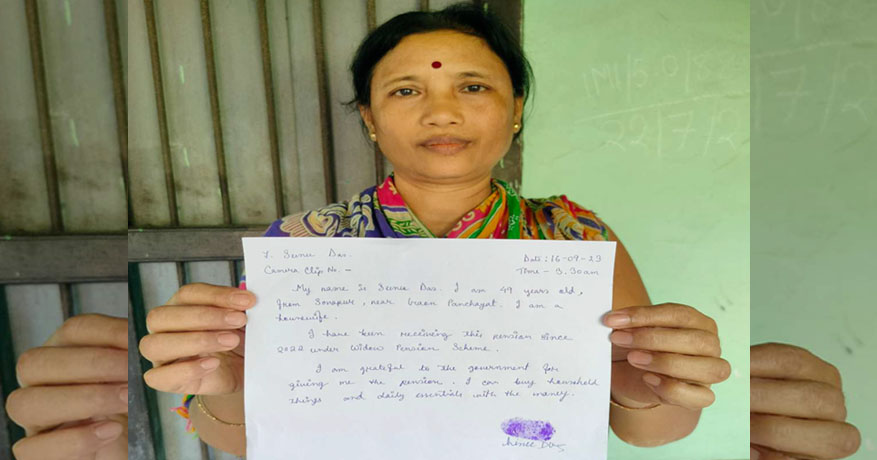 7. Seenu Das.
Date: 16-09-23
Camera Clip No. -
Time - 3.30am
My name is Seenu Das. I am 49 years old,
from Sonapur, near Gaon Panchayat. I am a
housewife.
I have been receiving this pension since
2022 under Widow Pension Scheme.
I am grateful to the government for
giving me the pension. I can buy household
things and daily essentials with the money.
22/7/2